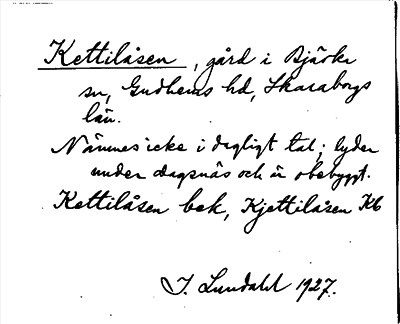 Kettilåsen, gård i Bjärka
sn, Gudhems hd, Skaraborgs
län.
Nämnes icke i dagligt tal; lyder
under Dagsnäs och är obebyggt.
Kettilåsen bek, Kjettilåsen Kb
J. Lundahl 1927.